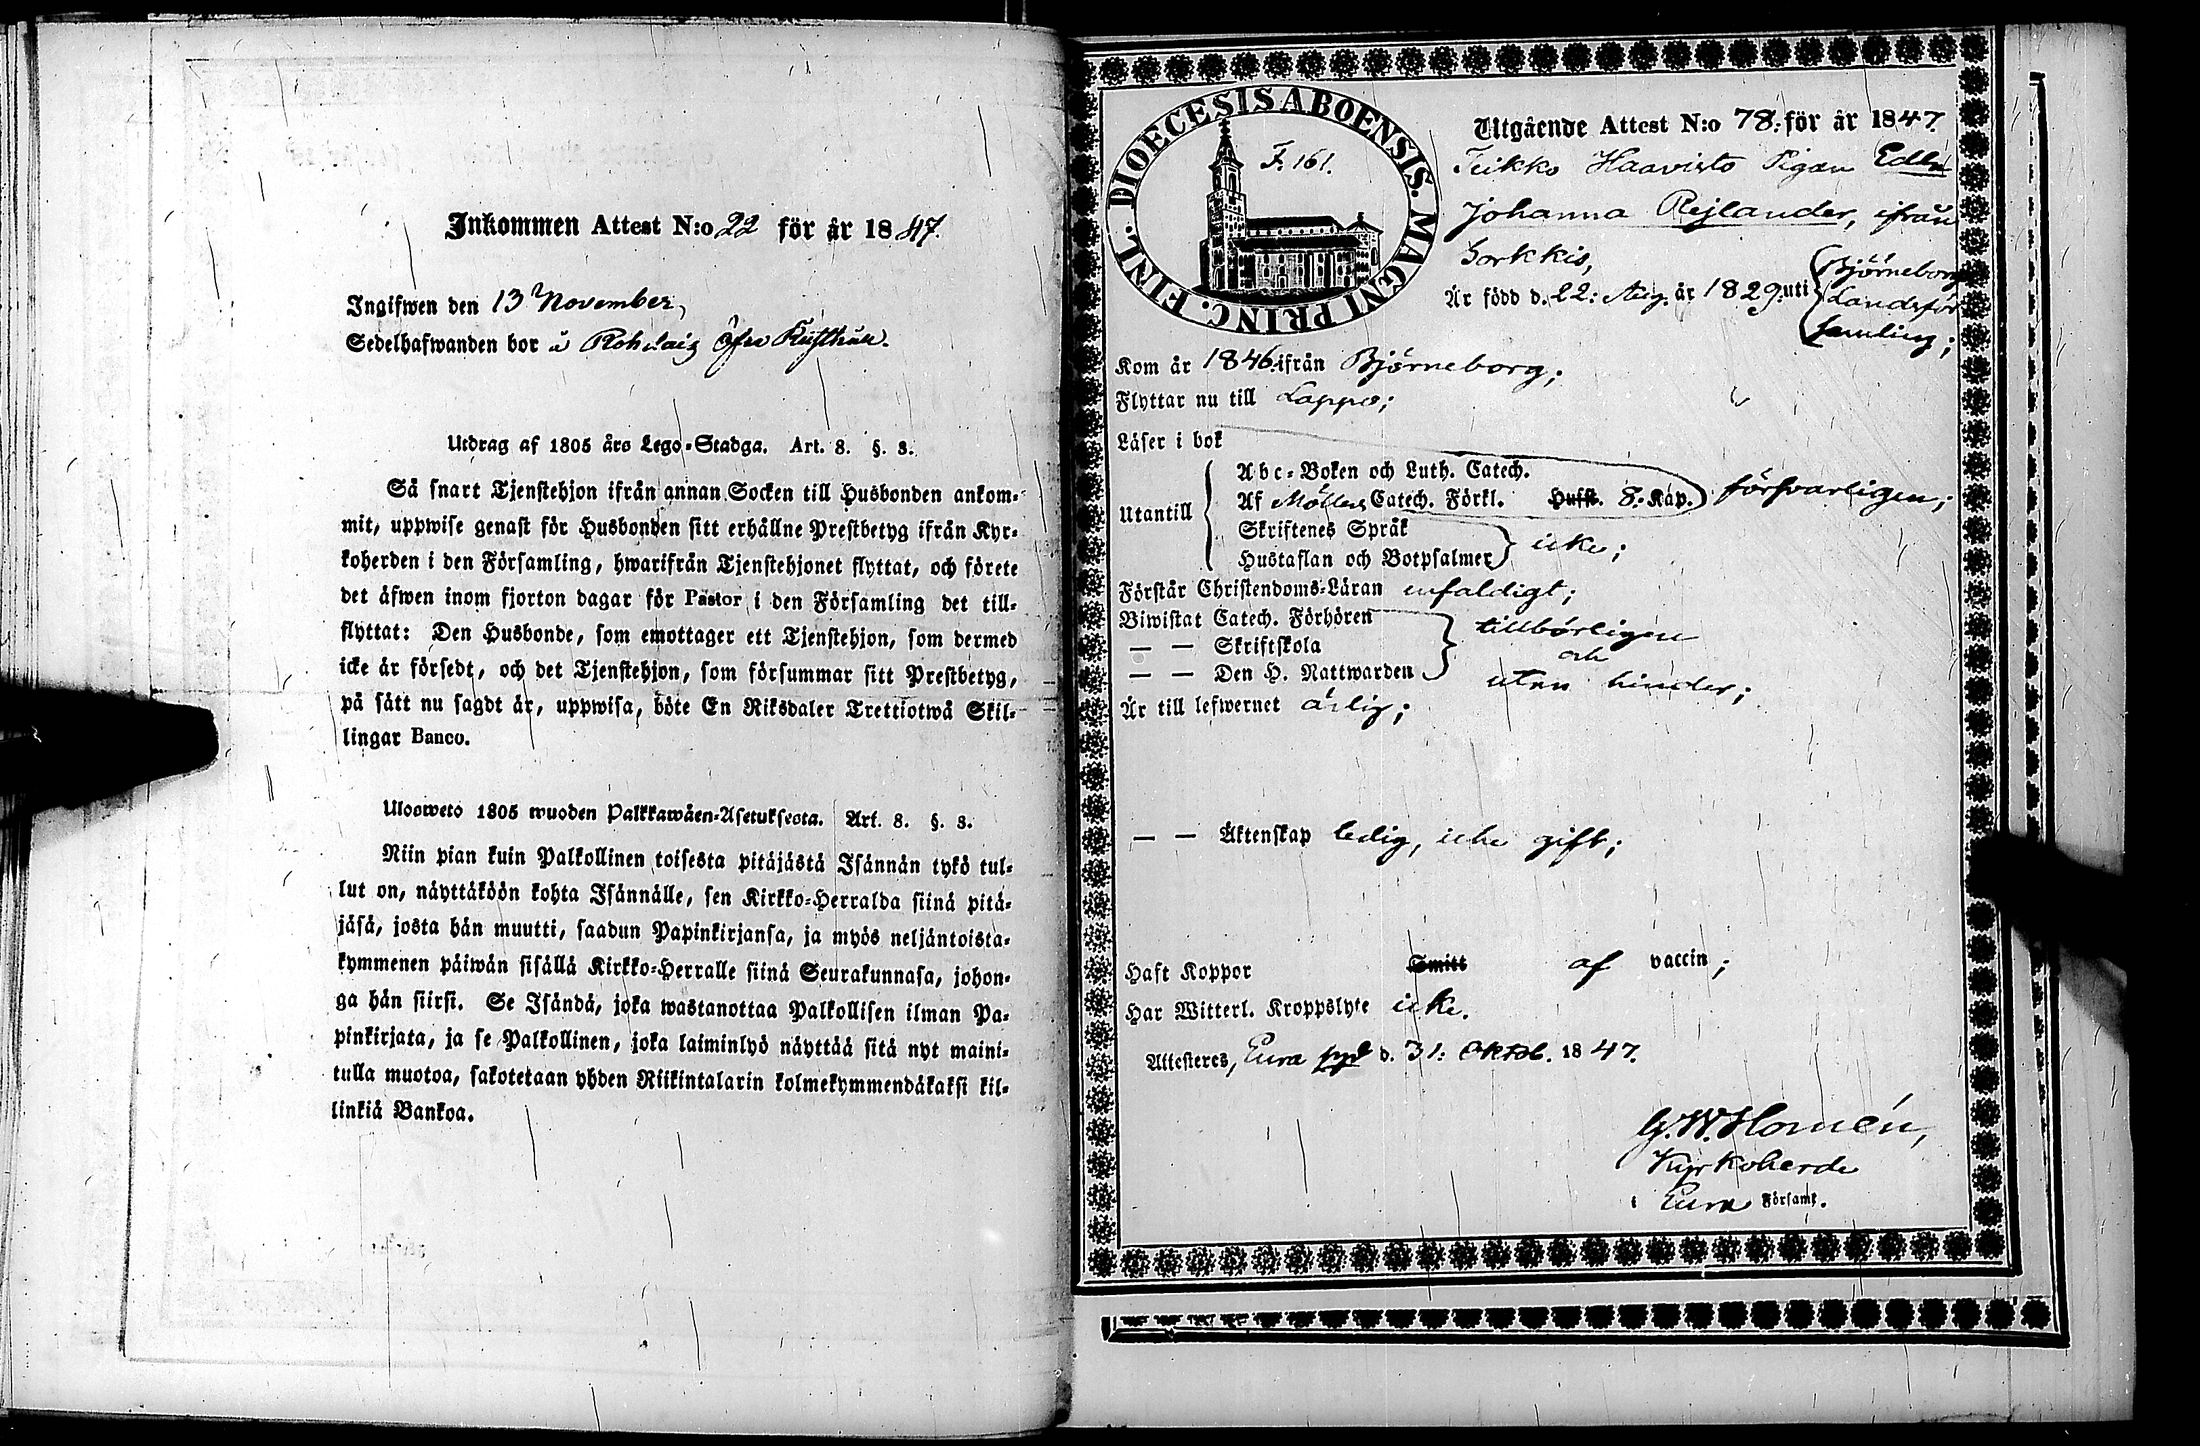 Inkommen Attest N:o 22 för år 1847.
Ingifwen den 13 November,
Sedelhafwanden bor å
Utdrag af 1805 års Lego-Stadga. Art. 8. §. 3.
Så snart Tjenstehjon ifrån annan Socken till Husbonden ankom-
mit, uppwise genast för Husbonden sitt erhållne Prestbetyg ifrån Kyr-
koherden i den Församling, hwarifrån Tjenstehjonet flyttat, och förete
det äfwen inom fjorton dagar för Pastor i den Församling det till-
flyttat: Den Husbonde, som emottager ett Tjenstehjon, som dermed
icke är försedt, och det Tjenstehjon, som försummar sitt Prestbetyg,
på sätt nu sagdt är, uppwisa, böte En Riksdaler Trettiotwå Skil-
lingar Banco.
Ulosweto 1805 wuoden Palkkawäen-Asetuksesta. Art. 8. §. 3.
Niin pian kuin Palkollinen toisesta pitäjästä Isännän tykö tul-
lut on, näyttäköön kohta Isännälle, sen Kirkko-Herralda siinä pitä-
jäsä, josta hän muutti, saadun Papinkirjansa, ja myös neljäntoista-
kymmenen päiwän sisällä Kirkko-Herralle siinä Seurakunnasa, johon-
ga hän siirsi. Se Isändä, joka wastanottaa Palkollisen ilman Pa-
pinkirjata, ja se Palkollinen, joka laiminlyö näyttää sitä nyt maini-
tulla muotoa, sakotetaan yhden Riikintalarin kolmekymmendäkaksi kil-
linkiä Bankoa.
DIOECESIS ABOENSIS. MAGNI PRINC. FINL.
F. 161.
Utgående Attest N:o 78: för år 1847.
Haavisto Pigan
Johanna Rejlander, ifrån
Sorkkis,
Är född d. 22: Aug. år 1829. uti Björneborgs
Landsför
samling;
Kom år 1846. ifrån Björneborg;
Flyttar nu till Lappo;
Läser i bok
Utantill
Abc-Boken och Luth. Catech.
Af Möllers Catech. Förkl. Hufst. 8: Kap. försvarligen;
Skriftenes Språk
Hustaflan och Botpsalmer icke;
Förstår Christendoms-Läran enfaldigt;
Biwistat Catech. Förhören tillbörligen
— — Skriftskola och
— — Den H. Nattwarden utan hinder;
Är till lefwernet ärlig;
— — Äktenskap ledig, icke gift;
Haft Koppor Smitt af vaccin;
Har Witterl. Kroppslyte icke.
Attesteres, Eura d. 31: Oktob. 1847.
G. W. Homén,
Kyrkoherde
i Eura Församl.